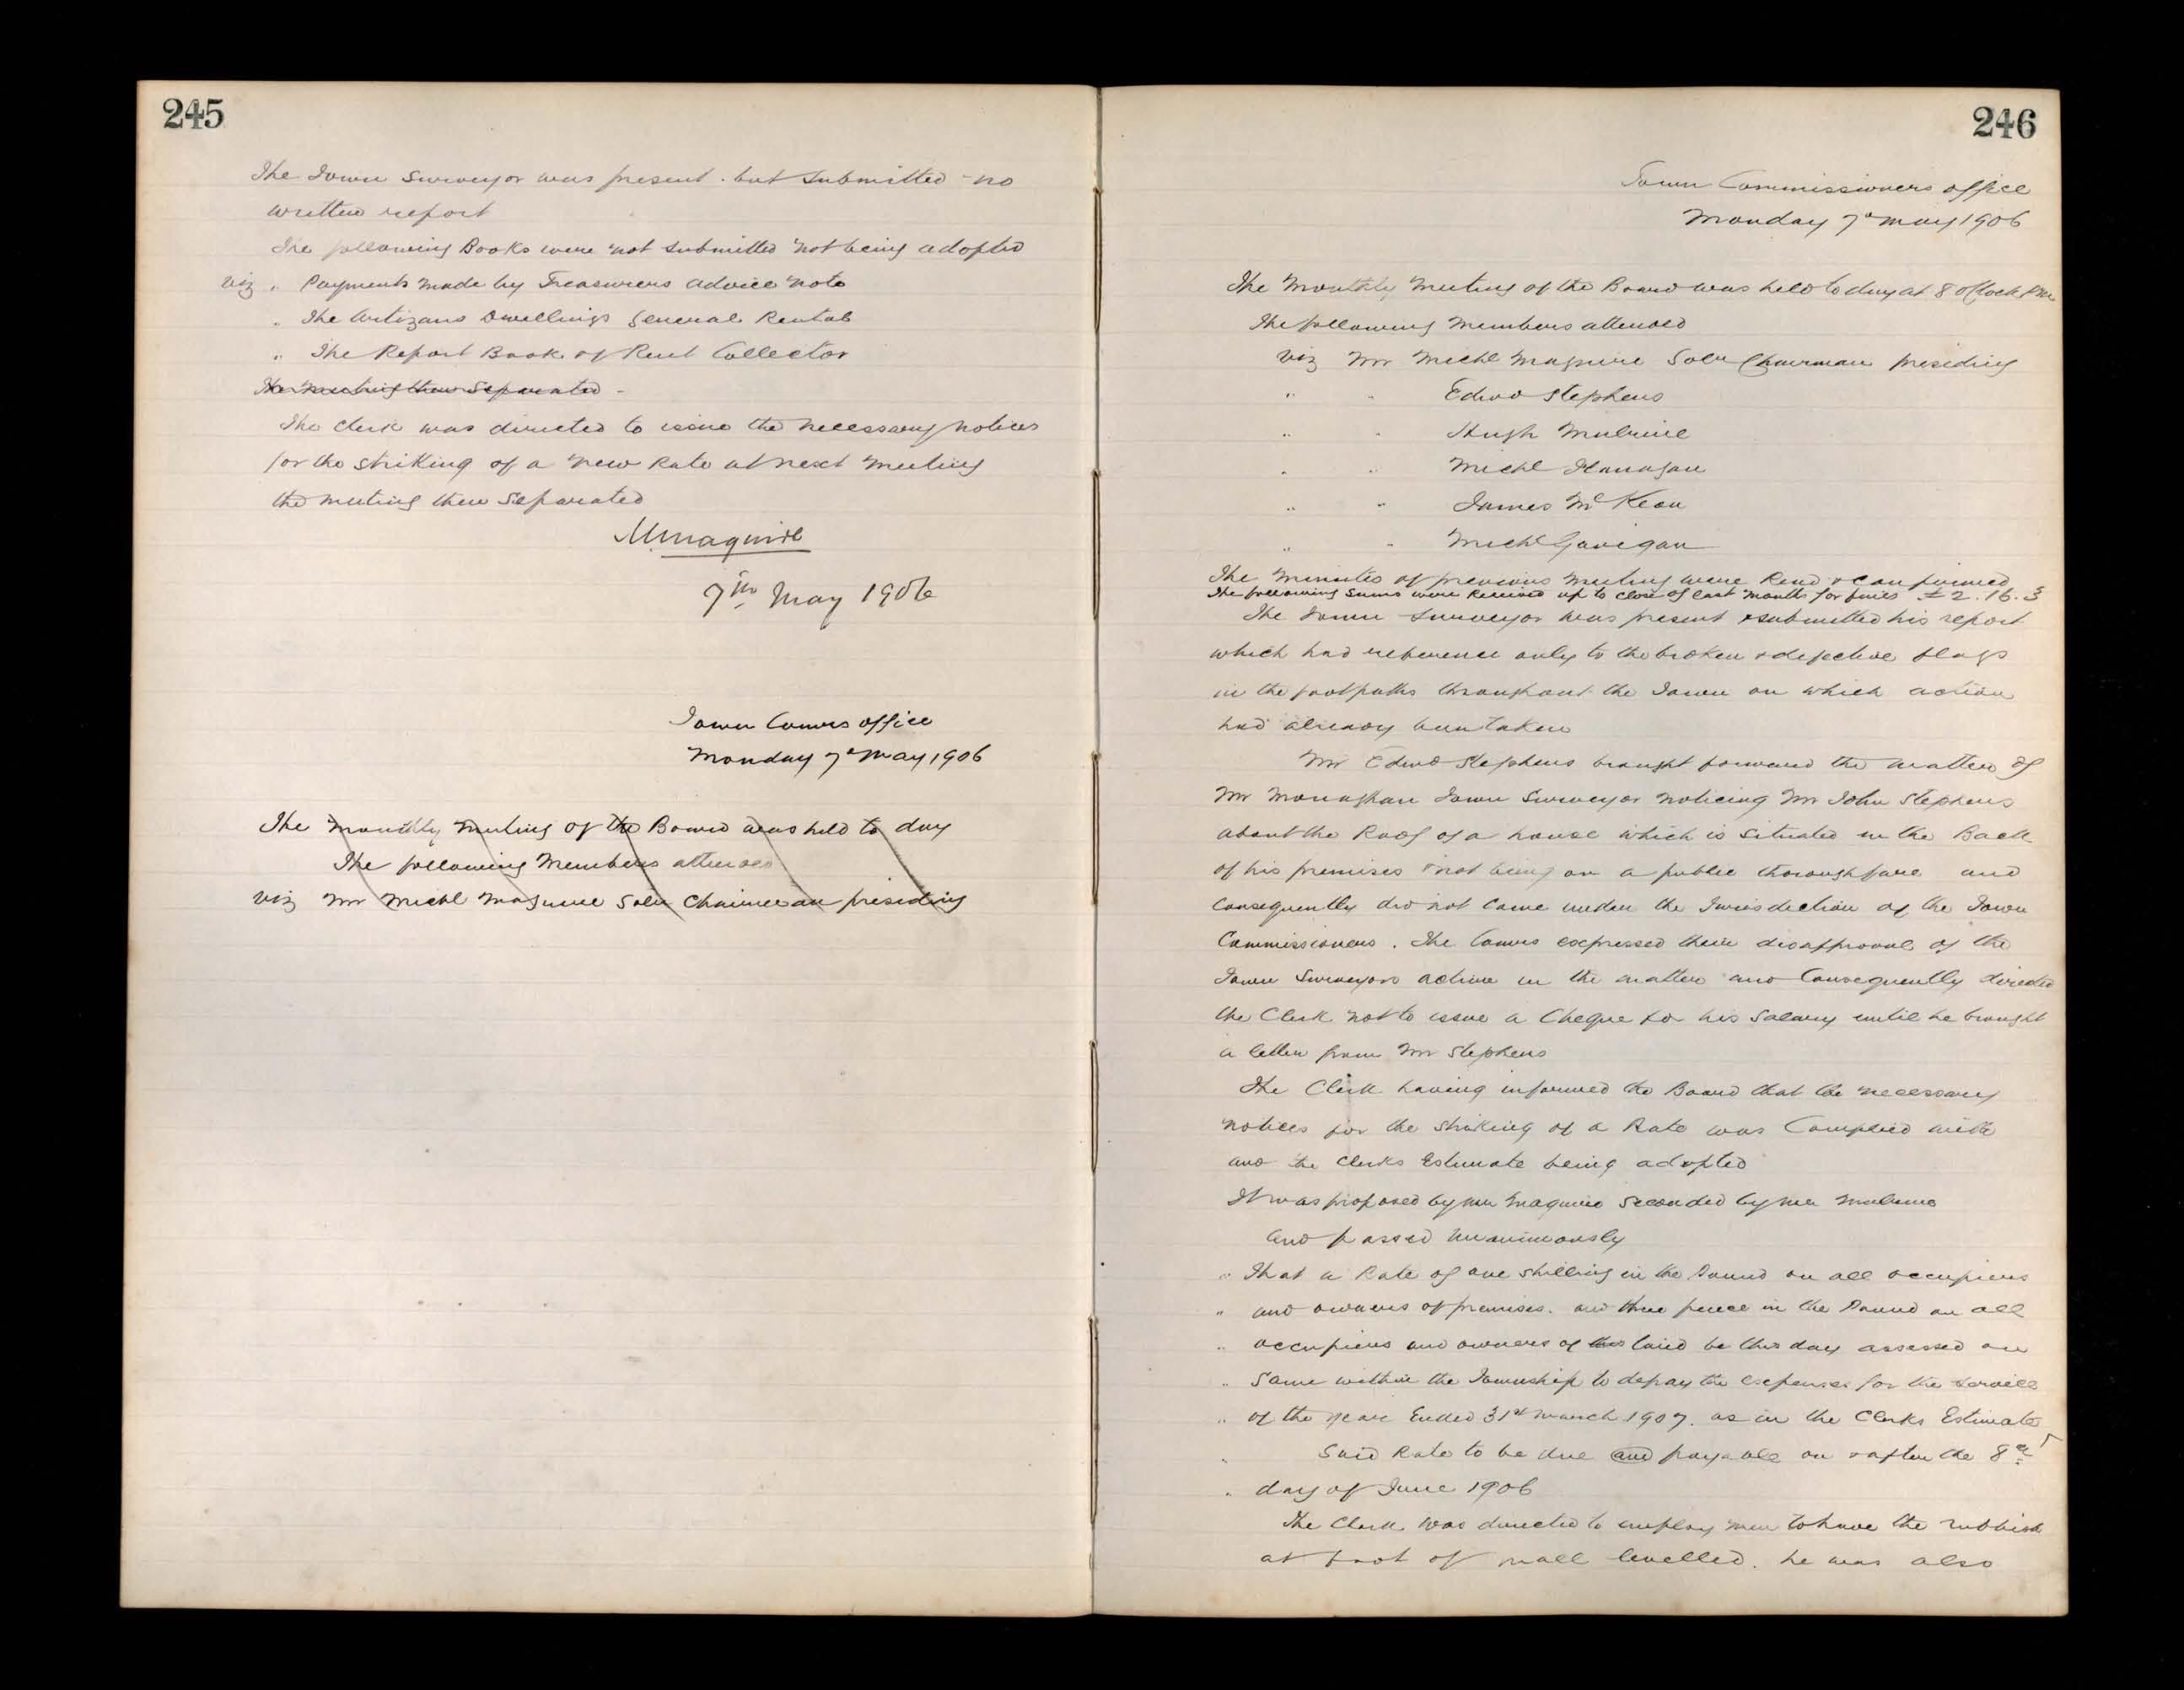 245
The Town Surveyor was present. but submitted no
written report
The following Books were not submitted not being adopted
viz " Payments made by Treasurers advice note
" The Artizans Dwellings General Rental
" The Report Book of Rent Collector
The meeting then separated -
The Clerk was directed to issue the necessary notices
for the striking of a new Rate at next meeting
the meeting then separated
MMaguire
7th May 1906
Town Comrs office
Monday 7th May 1906
The monthly meeting of the Board was held to day
The following Members attended
viz Mr Michl Maguire Solr Chairman presiding
246
Town Commissioners office
Monday 7th May 1906
The Monthly Meeting of the Board was held to day at 8 oClock PM
The following Members attended
viz Mr Michl Maguire Solr Chairman presiding
" " Edwd Stephens
" " Hugh Mulvine
" " Michl Flanagan
" " James McKeon
" " Michl Gavigan
The minutes of previous meeting were Read & confirmed
The following Sums were Received up to close of last month for fines £2.16.3
The Town Surveyor was present & submitted his report
which had reference only to the broken & defective flags
in the footpaths throughout the Town on which action
had already been taken
Mr Edwd Stephens brought forward the matter of
Mr Monaghan Town Surveyor noticing Mr John Stephens
about the Roof of a house which is situated in the Back
of his premises & not being on a public thoroughfare and
Consequently did not come under the Jurisdiction of the Town
Commissioners. The Comrs expressed their disapproval of the
Town Surveyors action in the matter and Consequently directed
the Clerk not to issue a Cheque for his Salary until he brought
a letter from Mr Stephens
The Clerk having informed the Board that the necessary
notices for the striking of a Rate was Complied with
and the Clerks Estimate being adopted
It was proposed by Mr Maguire seconded by Mr Mulvine
and passed unanimously
" That a Rate of one shilling in the Pound on all occupiers
" and owners of premises. and three pence in the Pound on all
" occupiers and owners of land be this day assessed on
" same within the Township to defray the expenses for the service
" of the year Ended 31st March 1907. as in the Clerks Estimate
" Said Rate to be due and payable on & after the 8th
" day of June 1906
The Clerk was directed to employ men to have the rubbish
at foot of mall levelled. he was also